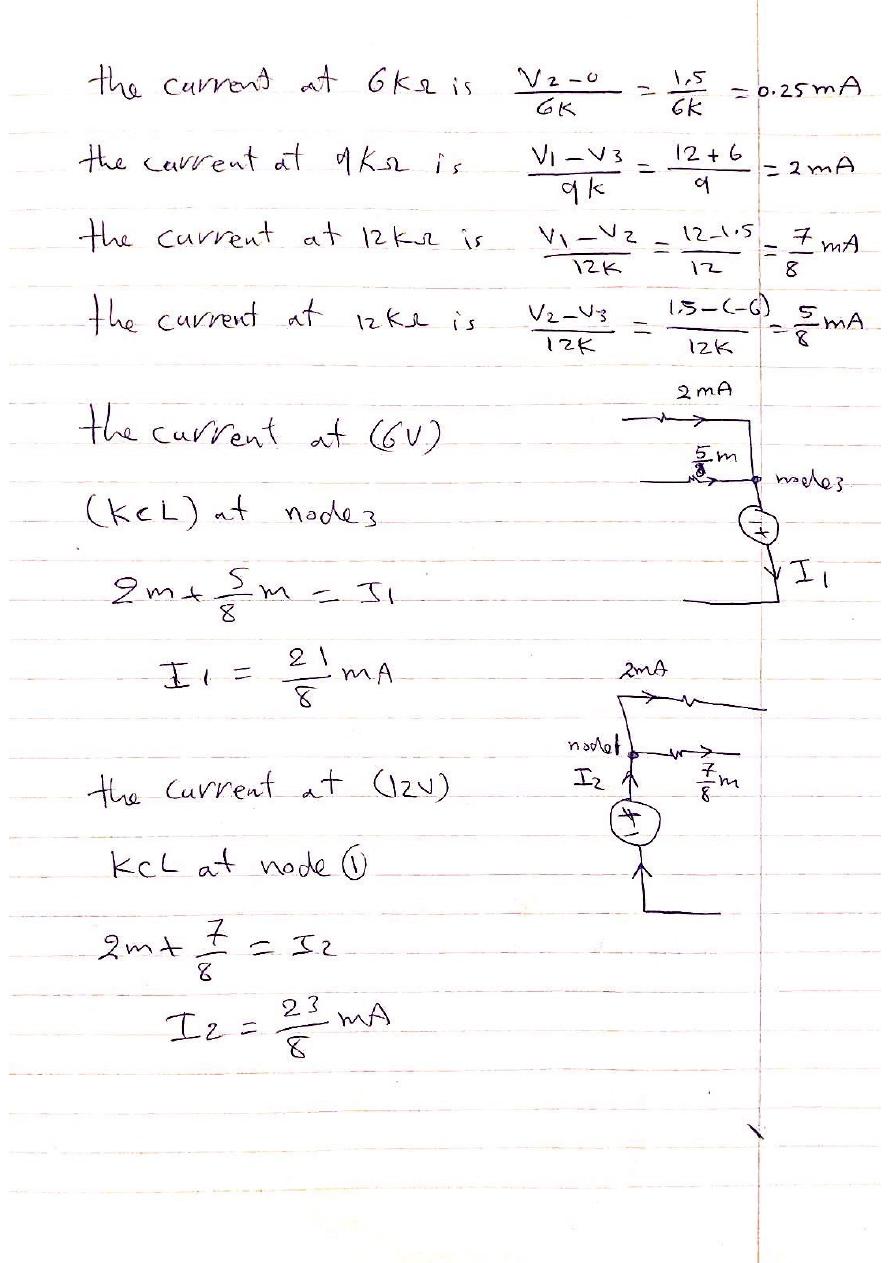 the current at 6KΩ is V2-0/6K = 1.5/6K = 0.25mA
the current at 9KΩ is V1-V3/9K = 12+6/9 = 2mA
the current at 12KΩ is V1-V2/12K = 12-1.5/12 = 7/8 mA
the current at 12KΩ is V2-V3/12K = 1.5-(-6)/12K = 5/8 mA
2mA
the current at (6V)
5/8 m
node3
(KCL) at node3
- +
I1
2m + 5/8 m = I1
I1 = 21/8 mA
2mA
node1
I2
7/8 m
the current at (12V)
+ -
KCL at node ①
2m + 7/8 = I2
I2 = 23/8 mA